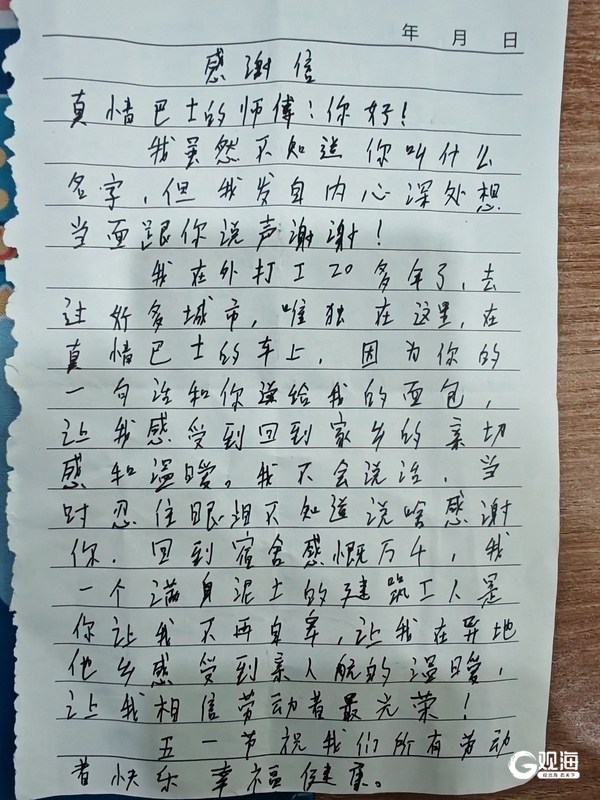 年 月 日
感谢信
真情巴士的师傅:你好!
我虽然不知道你叫什么
名字,但我发自内心深处想
当面跟你说声谢谢!
我在外打工20多年了,去
过好多城市,唯独在这里,在
真情巴士的车上,因为你的
一句话和你送给我的面包,
让我感受到回到家乡的亲切
感和温暖。我不会说话,当
时忍住眼泪不知道说啥感谢
你.回到宿舍感慨万千,我
一个满身泥土的建筑工人是
你让我不再自卑,让我在异地
他乡感受到亲人般的温暖,
让我相信劳动者最光荣!
五一节祝我们所有劳动
者快乐幸福健康。
观海